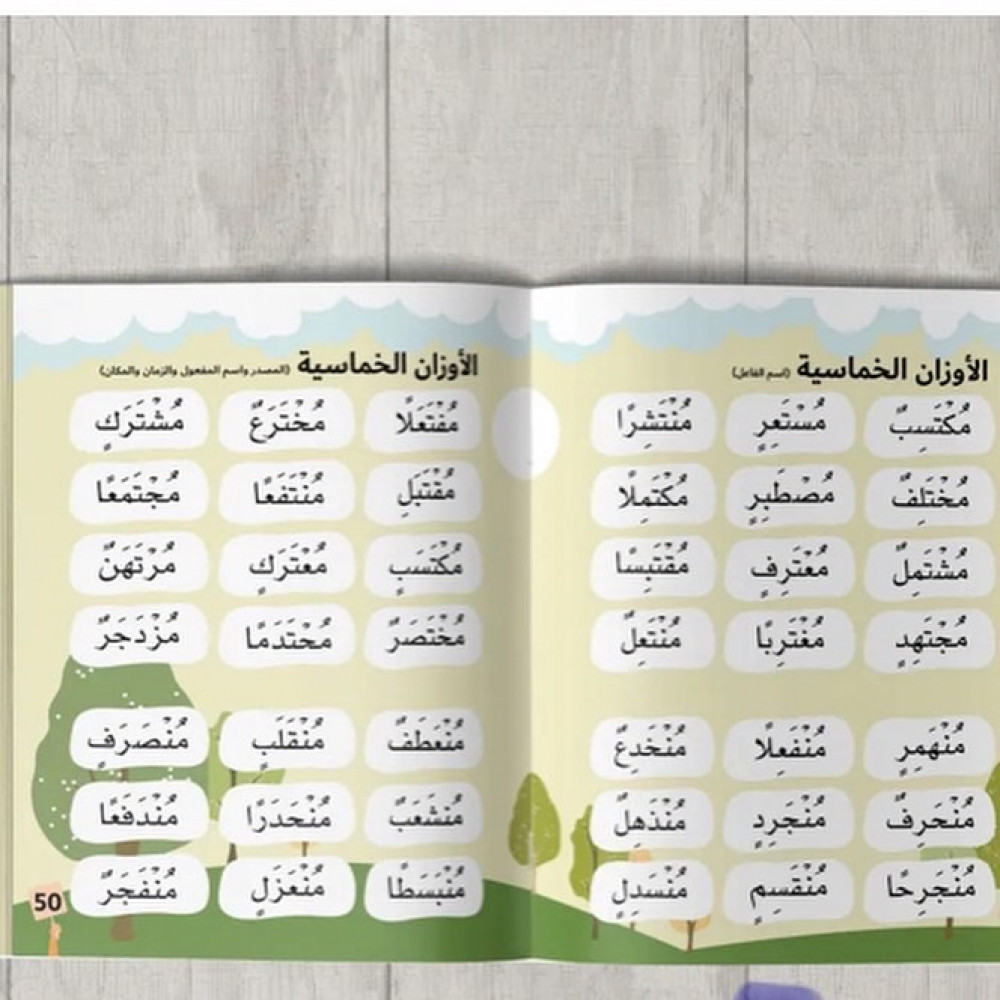 الأوزان الخماسية (اسم الفاعل)
مُكْتَسِبٌ مُسْتَعِرٍ مُنْتَشِرًا
مُخْتَلِفٌ مُصْطَبِرٍ مُكْتَمِلًا
مُشْتَمِلٌ مُعْتَرِفٍ مُقْتَبِسًا
مُجْتَهِدٍ مُغْتَرِبًا مُنْتَعِلٌ
مُنْهَمِرٍ مُنْفَعِلًا مُنْخَدِعٌ
مُنْحَرِفٌ مُنْجَرِدٍ مُنْذَهِلٌ
مُنْجَرِحًا مُنْقَسِمٍ مُنْسَدِلٍ
الأوزان الخماسية (المصدر واسم المفعول والزمان والمكان)
مُفْتَعَلًا مُخْتَرَعٌ مُشْتَرَكٍ
مُقْتَبَلٍ مُنْتَفَعًا مُجْتَمَعًا
مُكْتَسَبٍ مُعْتَرَكٍ مُرْتَهَنٌ
مُخْتَصَرٌ مُحْتَدَمًا مُزْدَجَرٌ
مُنْعَطَفٌ مُنْقَلَبٍ مُنْصَرَفٍ
مُنْشَعَبٌ مُنْحَدَرًا مُنْدَفَعًا
مُنْبَسَطًا مُنْعَزَلٍ مُنْفَجَرٌ
50